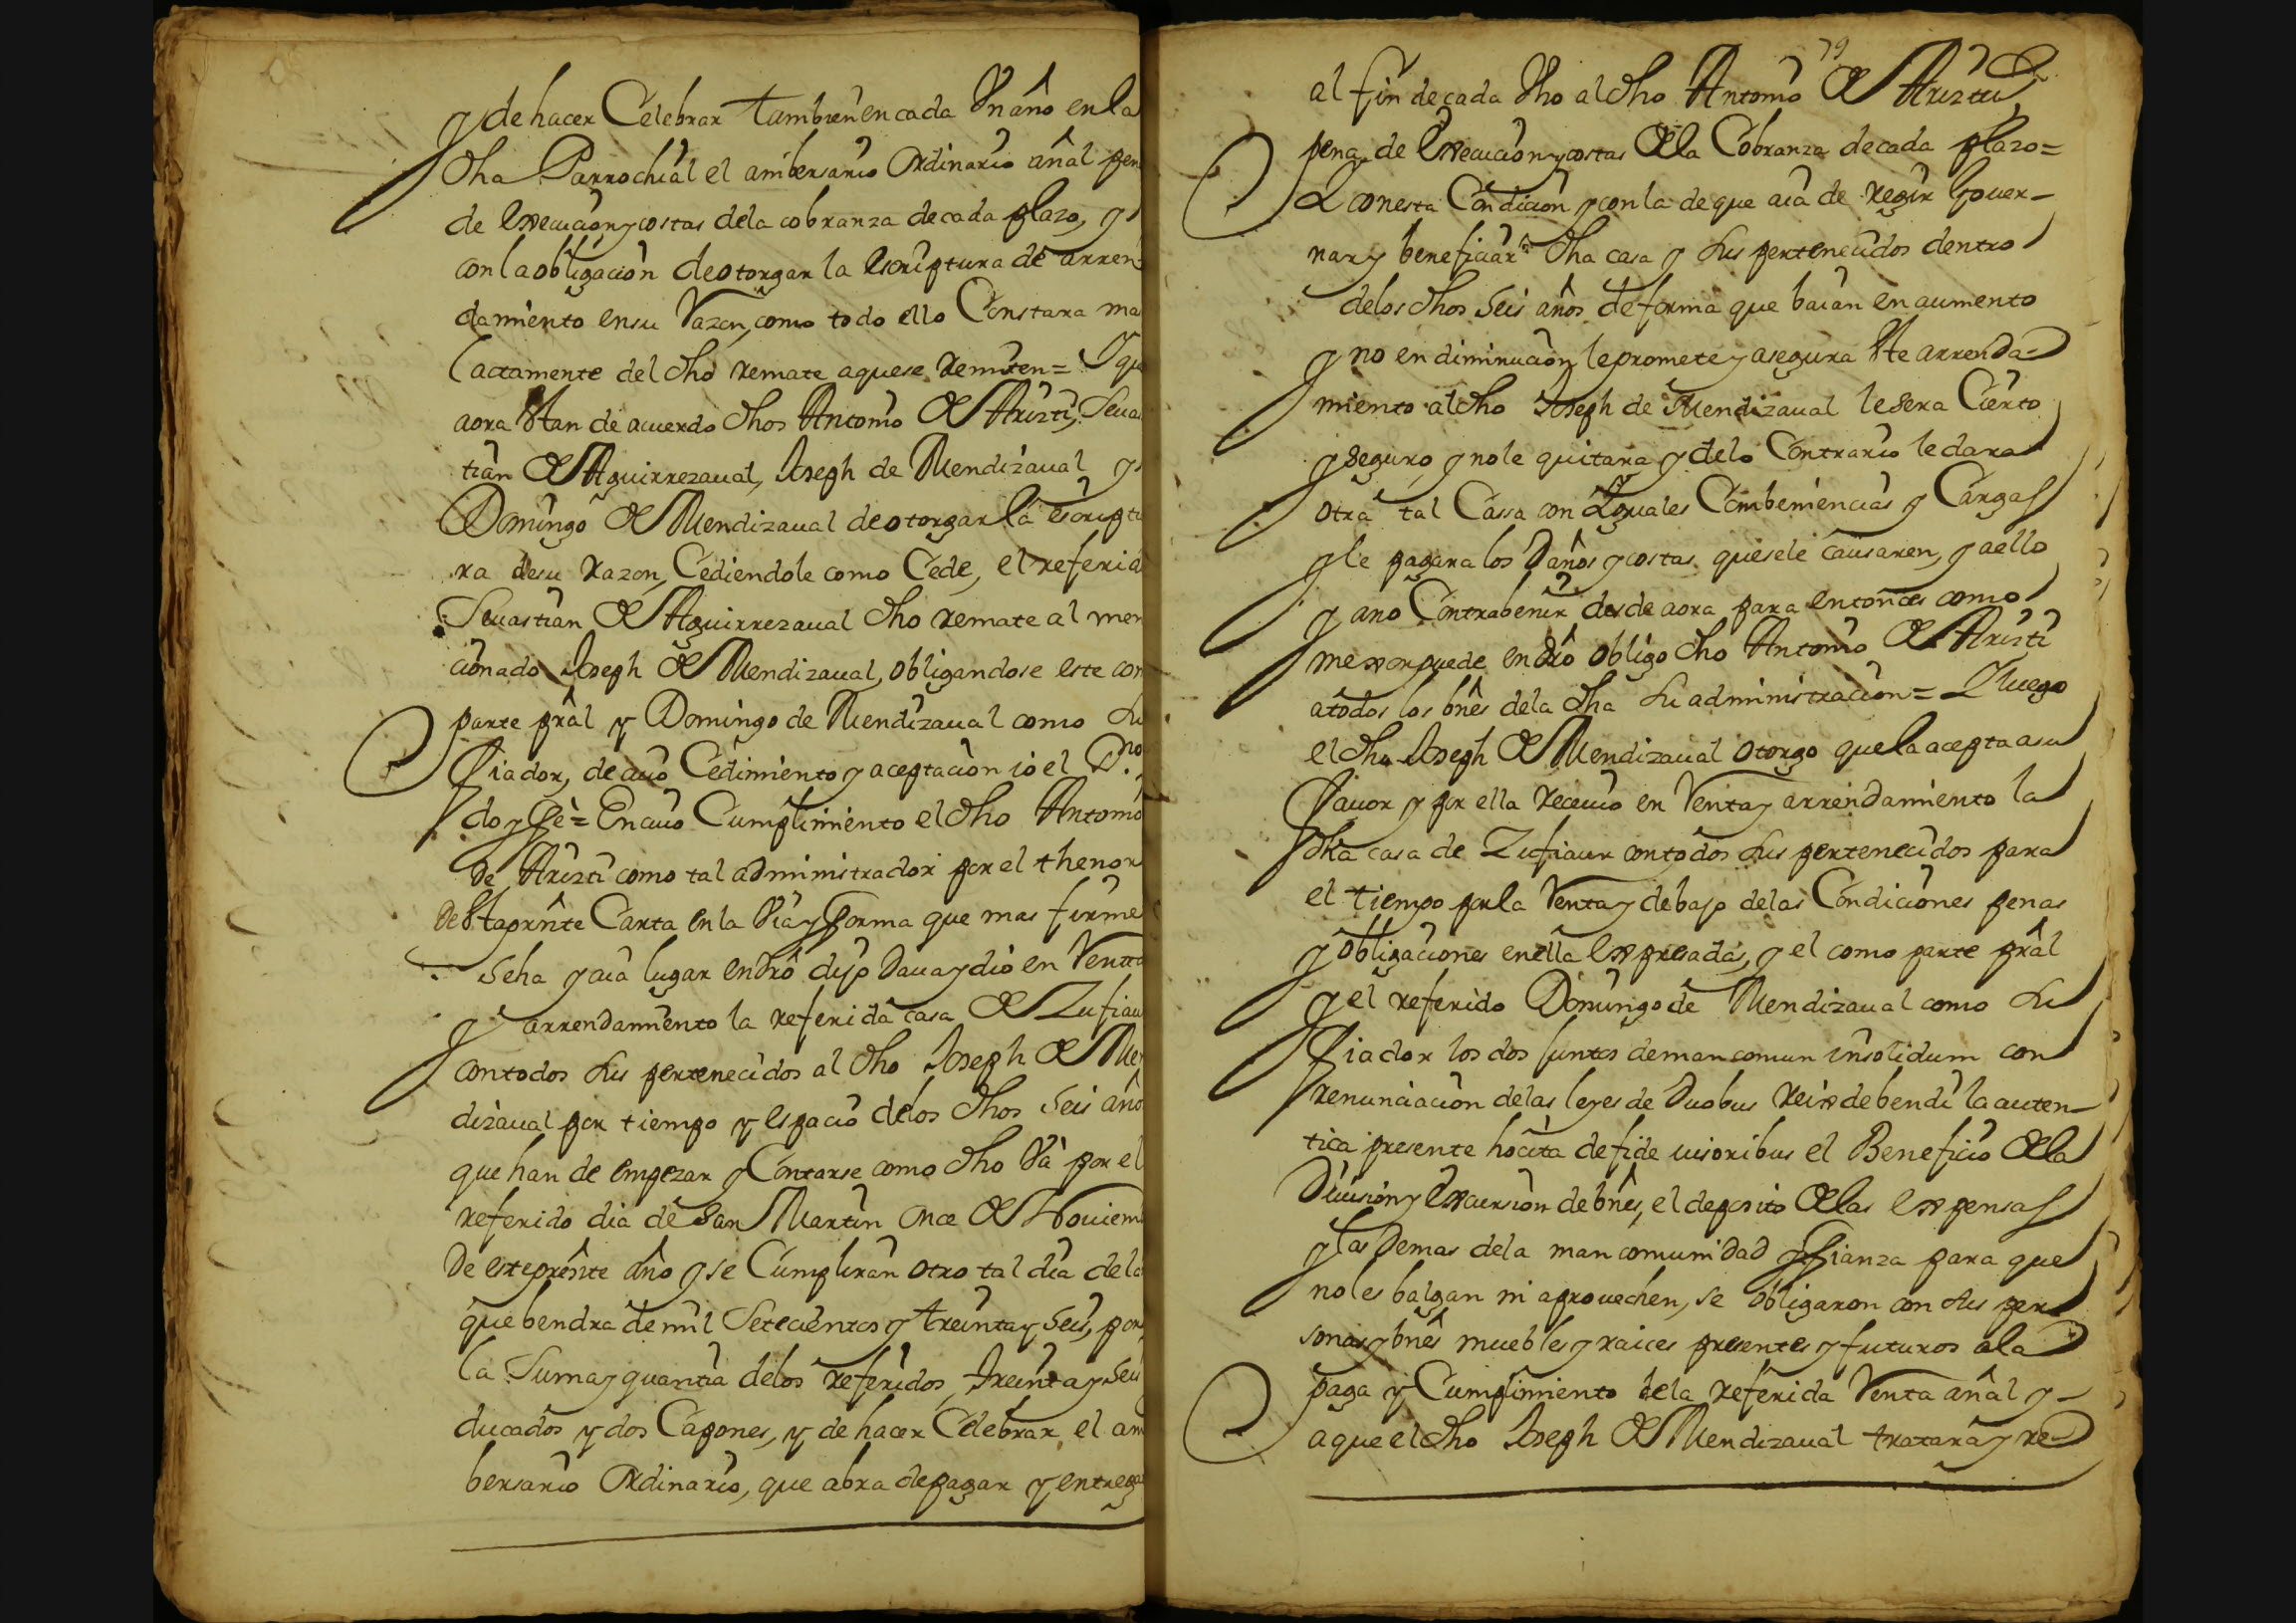 y de hacer Celebrar tambien en cada Un año en la
dha Parrochial el anibersario Ordinario añal pen
de execucion y costas dela cobranza de cada plazo, y
con la obligacion de otorgar la escriptura de arren
damiento en su Razon, como todo ello Constara ma
lactamente del dho remate a que se remiten = Y que
aora Estan de acuerdo dhos Antonio de Arizti, Seuas
tian de Aguirrezaual, Joseph de Mendizaual y
Domingo de Mendizaual de otorgar la escriptu
ra de su razon, Cediendole como Cede, el referido
Seuastian de Aguirrezaual dho remate al men
cionado Joseph de Mendizaual, obligandose este con
parte pral y Domingo de Mendizaual como su
fiador, de cuio Cedimiento y aceptacion io el Sno
doy fe = En cuio Cumplimiento el dho Antonio
de Arizti como tal administrador por el thenor
de Esta prnte Carta en la Via y forma que mas firme
sea y aia lugar en dro dijo daua y dio en Rentta
y arrendamiento la referida casa de Zufiaur
con todos sus pertenecidos al dho Joseph de Men
dizaual por tiempo y espacio delos dhos seis año
que han de empezar y Contarse como dho Va por el
referido dia de San Martin once de Nouiem
de este prente año y se Cumpliran otro tal dia de la
que bendra de mil Setecientos y treinta y seis, por
la Suma y quantia delos referidos, treinta y seis
ducados y dos Capones, y de hacer Celebrar el ani
bersario Ordinario, que abra de pagar y entregar
79
al fin de cada Vno al dho Antonio de Arizti
pena de execucion y costas dela Cobranza de cada plazo =
Y con esta Condicion y con la de que aia de regir Gouer-
nar y beneficiar dha casa y sus pertenecidos dentro
delos dhos seis años de forma que baian en aumento
y no en diminucion le promete y asegura Este arrenda=
miento al dho Joseph de Mendizaual le sera Cierto
y seguro, y no le quitara y de lo Contrario le dara
otra tal Cassa con Yguales Combeniencias y Cargas
y le pagara los Daños y costas que se le causaren, y a ello
y a no Contrabenir desde aora para entonces como
mexor puede en dro obligo dho Antonio de Arizti
a todos los bnes dela dha su administracion = Y luego
el dho Joseph de Mendizaual otorgo que la acepta a su
fauor y por ella Receuio en Renta y arrendamiento la
dha casa de Zufiaur con todos sus pertenecidos para
el tiempo por la Renta y debajo delas Condiciones penas
y obligaciones en ella expresadas, y el como parte pral
y el referido Domingo de Mendizaual como su
fiador los dos Juntos de man comun insolidum con
renunciacion delas leyes de Duobus Reix debendi la auten-
tica presente hocita de fide iusoribus el Beneficio dela
Diuision y excursion de bnes, el deposito delas expensas
y las Demas dela man comunidad y fianza para que
no les balgan ni aprouechen, se obligaron con sus per
sonas y bnes muebles y raices presentes y futuros a la
paga y Cumplimiento dela referida Renta añal y-
a que el dho Joseph de Mendizaual tratara y re